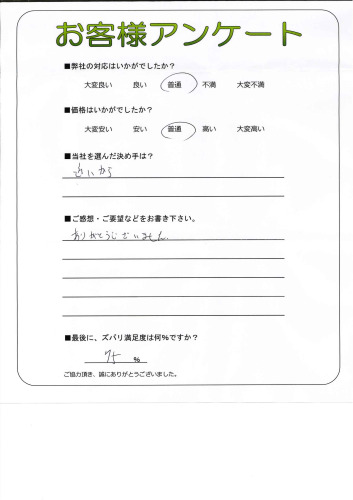 お客様アンケート
■弊社の対応はいかがでしたか？
大変良い 良い 普通 不満 大変不満
■価格はいかがでしたか？
大変安い 安い 普通 高い 大変高い
■当社を選んだ決め手は？
近いから
■ご感想・ご要望などをお書き下さい。
ありがとうございました
■最後に、ズバリ満足度は何%ですか？
75 %
ご協力頂き、誠にありがとうございました。